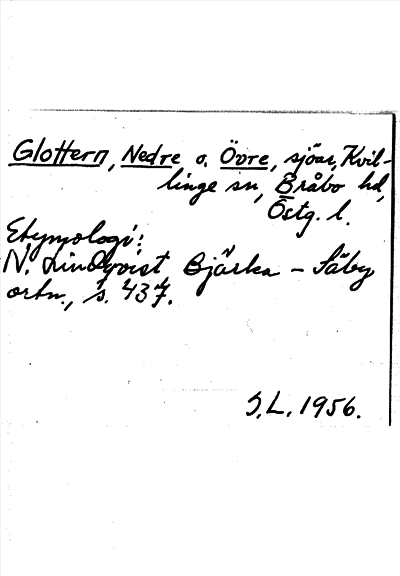 Glottern, Nedre o. Övre, sjöar, Kvil-
linge sn, Bråbo hd,
Östg. l.
Etymologi:
N. Lindqvist, Bjärka - Säby
ortn., s. 437.
S.L. 1956.